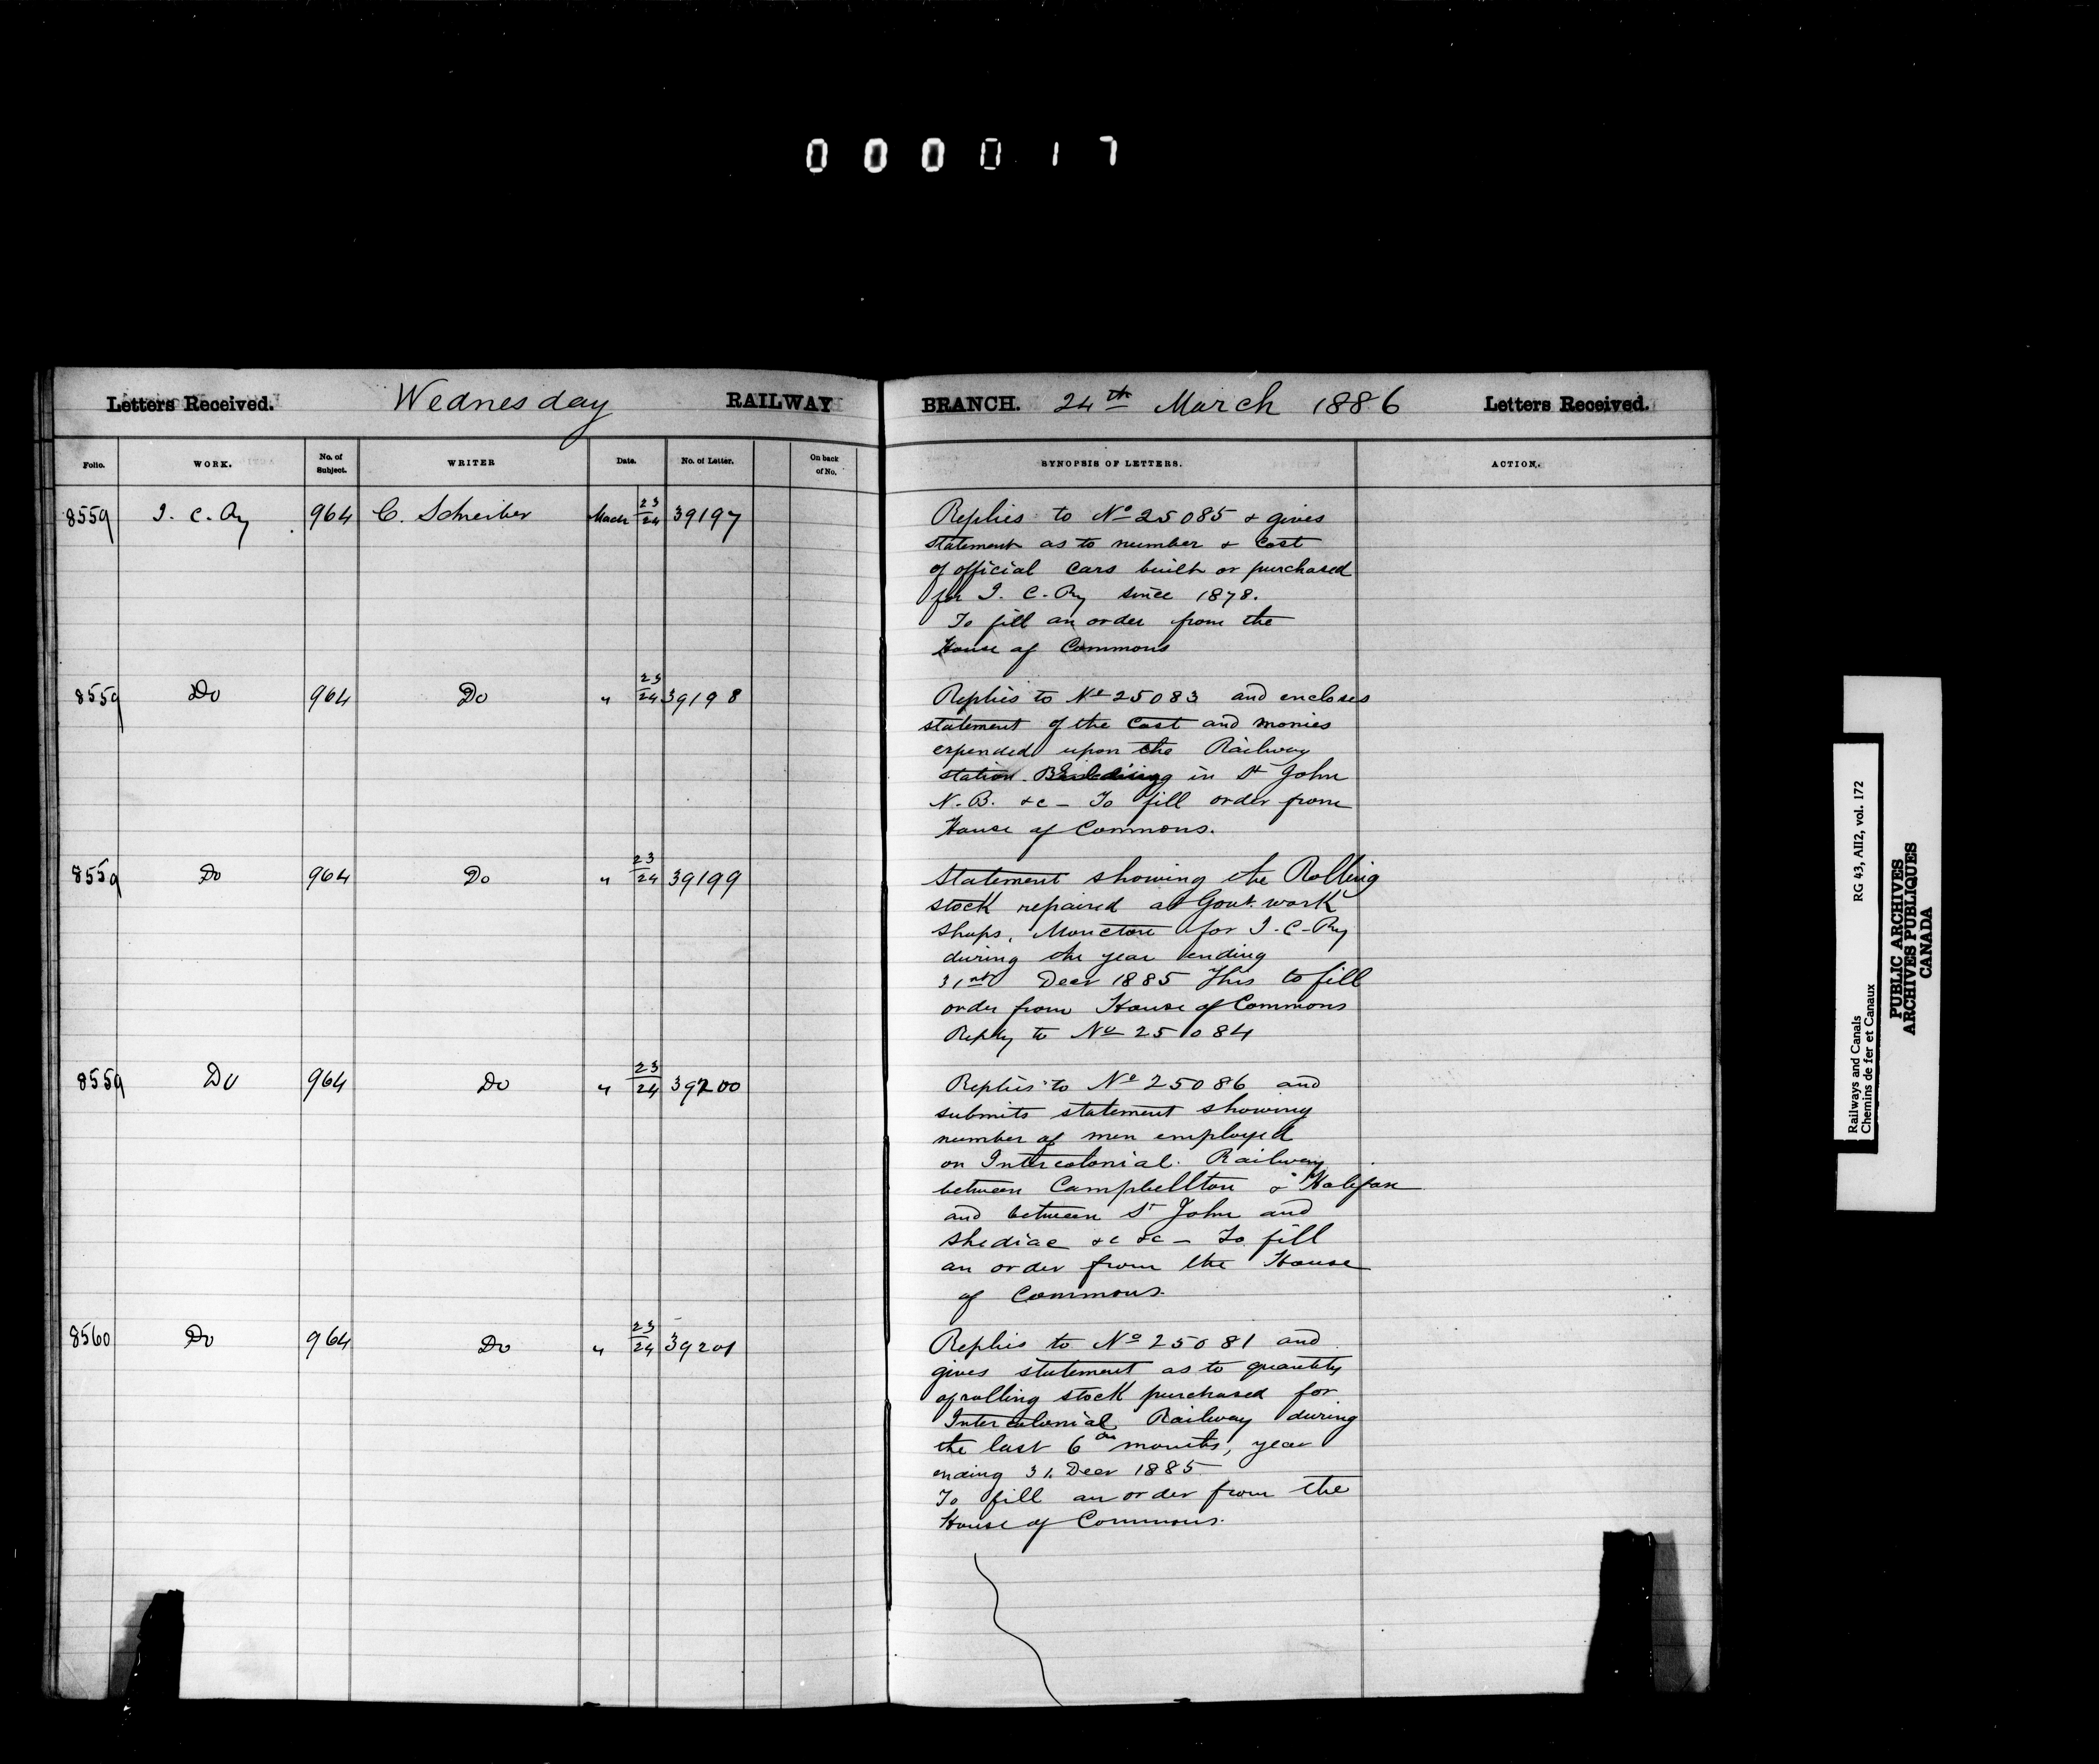 000017
Letters Received. Wednesday RAILWAY BRANCH. 24th March 1886 Letters Received.
Folio. WORK. No. of Subject. WRITER Date. No. of Letter. On back of No. SYNOPSIS OF LETTERS. ACTION.
8559 I. C. Ry 964 C. Schreiber March 23/24 39197 Replies to No 25085 & gives
statement as to number & cost
of official cars built or purchased
for I. C. Ry since 1878.
To fill an order from the
House of Commons
8559 Do 964 Do " 23/24 39198 Replies to No 25083 and encloses
statement of the cost and monies
expended upon the Railway
station Building in St John
N.B. &c - To fill order from
House of Commons.
8559 Do 964 Do " 23/24 39199 Statement showing the Rolling
stock repaired at Govt. work
shops, Moncton for I. C. Ry
during the year ending
31st Decr 1885 This to fill
order from House of Commons
Reply to No 25084
8559 Do 964 Do " 23/24 39200 Replies to No 25086 and
submits statement showing
number of men employed
on Intercolonial Railway
between Campbellton & Halifax
and between St John and
Shediac &c &c - To fill
an order from the House
of Commons.
8560 Do 964 Do " 23/24 39201 Replies to No 25081 and
gives statement as to quantity
of rolling stock purchased for
Intercolonial Railway during
the last 6 months, year
ending 31. Decr 1885
To fill an order from the
House of Commons.
Railways and Canals RG 43, AII2, vol. 172
Chemins de fer et Canaux
PUBLIC ARCHIVES
ARCHIVES PUBLIQUES
CANADA